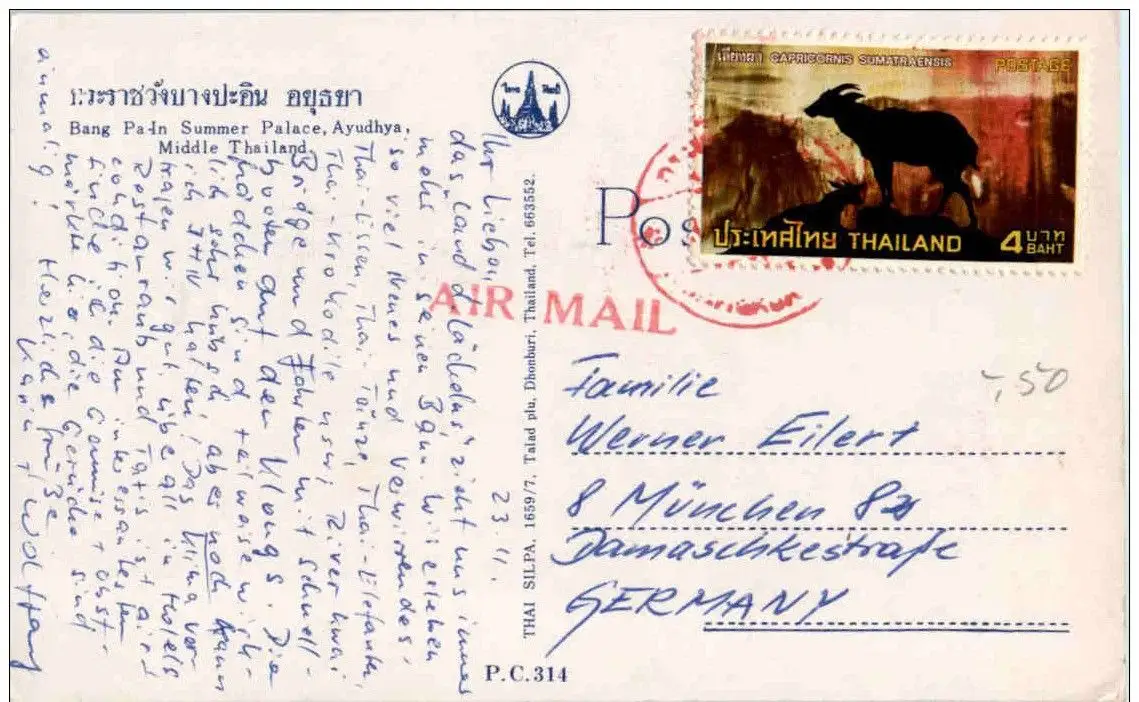 พระราชวังบางปะอิน อยุธยา
Bang Pa-In Summer Palace, Ayudhya,
Middle Thailand.
23.11.
Ihr Lieben,
das "Land d. Lächelns" zieht uns immer
mehr in seinen Bann. Wir erleben
so viel Neues und Verwirrendes.
Thai-Essen, Thai-Tänze, Thai-Elefanten,
Thai-Krokodile, River Kwai
Bridge und Fahrten mit Schnell-
booten auf den Klongs. Die
Mädchen sind teilweise wirk-
lich sehr hübsch aber noch kann
ich IHN halten! Das Klima ver-
tragen wir gut, überall in Hotels
Restaurants und Taxis ist airi
condition. Am interessantesten
finde ich die Gemüse + Obst-
märkte hier, die Gerüche sind
einmalig!
Herzliche Grüße
Karin + Wolfgang
THAI SILPA, 1659/7, Talad plu, Dhonburi, Thailand, Tel. 663552.
P.C.314
Pos
AIR MAIL
เลียงผา CAPRICORNIS SUMATRAENSIS POSTAGE
ประเทศไทย THAILAND 4 บาท BAHT
-,50
Familie
Werner Eilert
8 München 82
Damaschkestraße
GERMANY